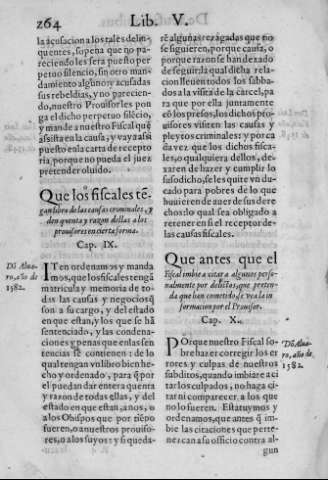 264
Lib. V.
la acusacion a los tales delin-
quentes, so pena que no pa-
reciendo les sera puesto per
petuo silencio, sin otro man-
damiento alguno y acusadas
sus rebeldias, y no parecien-
do, nuestro Prouisor les pon
ga el dicho perpetuo silēcio,
y mande a nuestro Fiscal que
assista en la causa, y vaya assi
puesto en la carta de recepto
ria, porque no pueda el juez
pretender oluido.
Que los fiscales tē-
gan libro de las causas criminales, y
den quenta y razon dellas a los
prouisores en cierta forma.
Cap. IX.
Dō Alua-
ro, año de
1582.
ITen ordenamos y manda
mos, que los fiscales tengā
matricula y memoria de to
das las causas y negocios q̄
son a su cargo, y del estado
en que estan, y los que se hā
sentenciado, y las condena-
ciones y penas que en las sen
tencias se contienen: de lo
qual tengan vn libro bien he
cho y ordenado, para q̄ por
el puedan dar entera quenta
y razon de todas ellas, y del
estado en que estan, a nos, o
a los Obispos que por tiēpo
fueren, o a nuestros prouiso-
res, o a los suyos y si queda-
rē algunas rezagadas que no
se siguieren, porque causa, o
porque razon se han dexado
de seguir: la qual dicha rela-
cion lleuen todos los saba-
dos a la visita de la carcel, pa
ra que por ella juntamente
cō los presos, los dichos pro-
uisores visiten las causas y
pleytos criminales: y por ca
da vez que los dichos fisca-
les, o qualquiera dellos, de-
xaren de hazer y cumplir lo
susodicho, se les quite vn du-
cado para pobres de lo que
huuieren de auer de sus dere
chos: lo qual sea obligado a
retener en si el receptor de-
las causas fiscales.
Que antes que el
Fiscal imbie a citar a algunos perso-
nalmente por delictos, que preten-
da que han cometido, se vea la in
formacion por el Prouisor.
Cap. X.
Dō Alua-
ro, año de
1582.
POrque nuestro Fiscal so-
bre hazer corregir los er
rores y culpas de nuestros
subditos, quando imbiare a ci
tar los culpados, no haga ci-
tar ni comparecer, a los que
no lo fueren. Estatuymos y
ordenamos, que antes q̄ im-
bie las citaciones que perte-
necan a su officio contra al-
gun